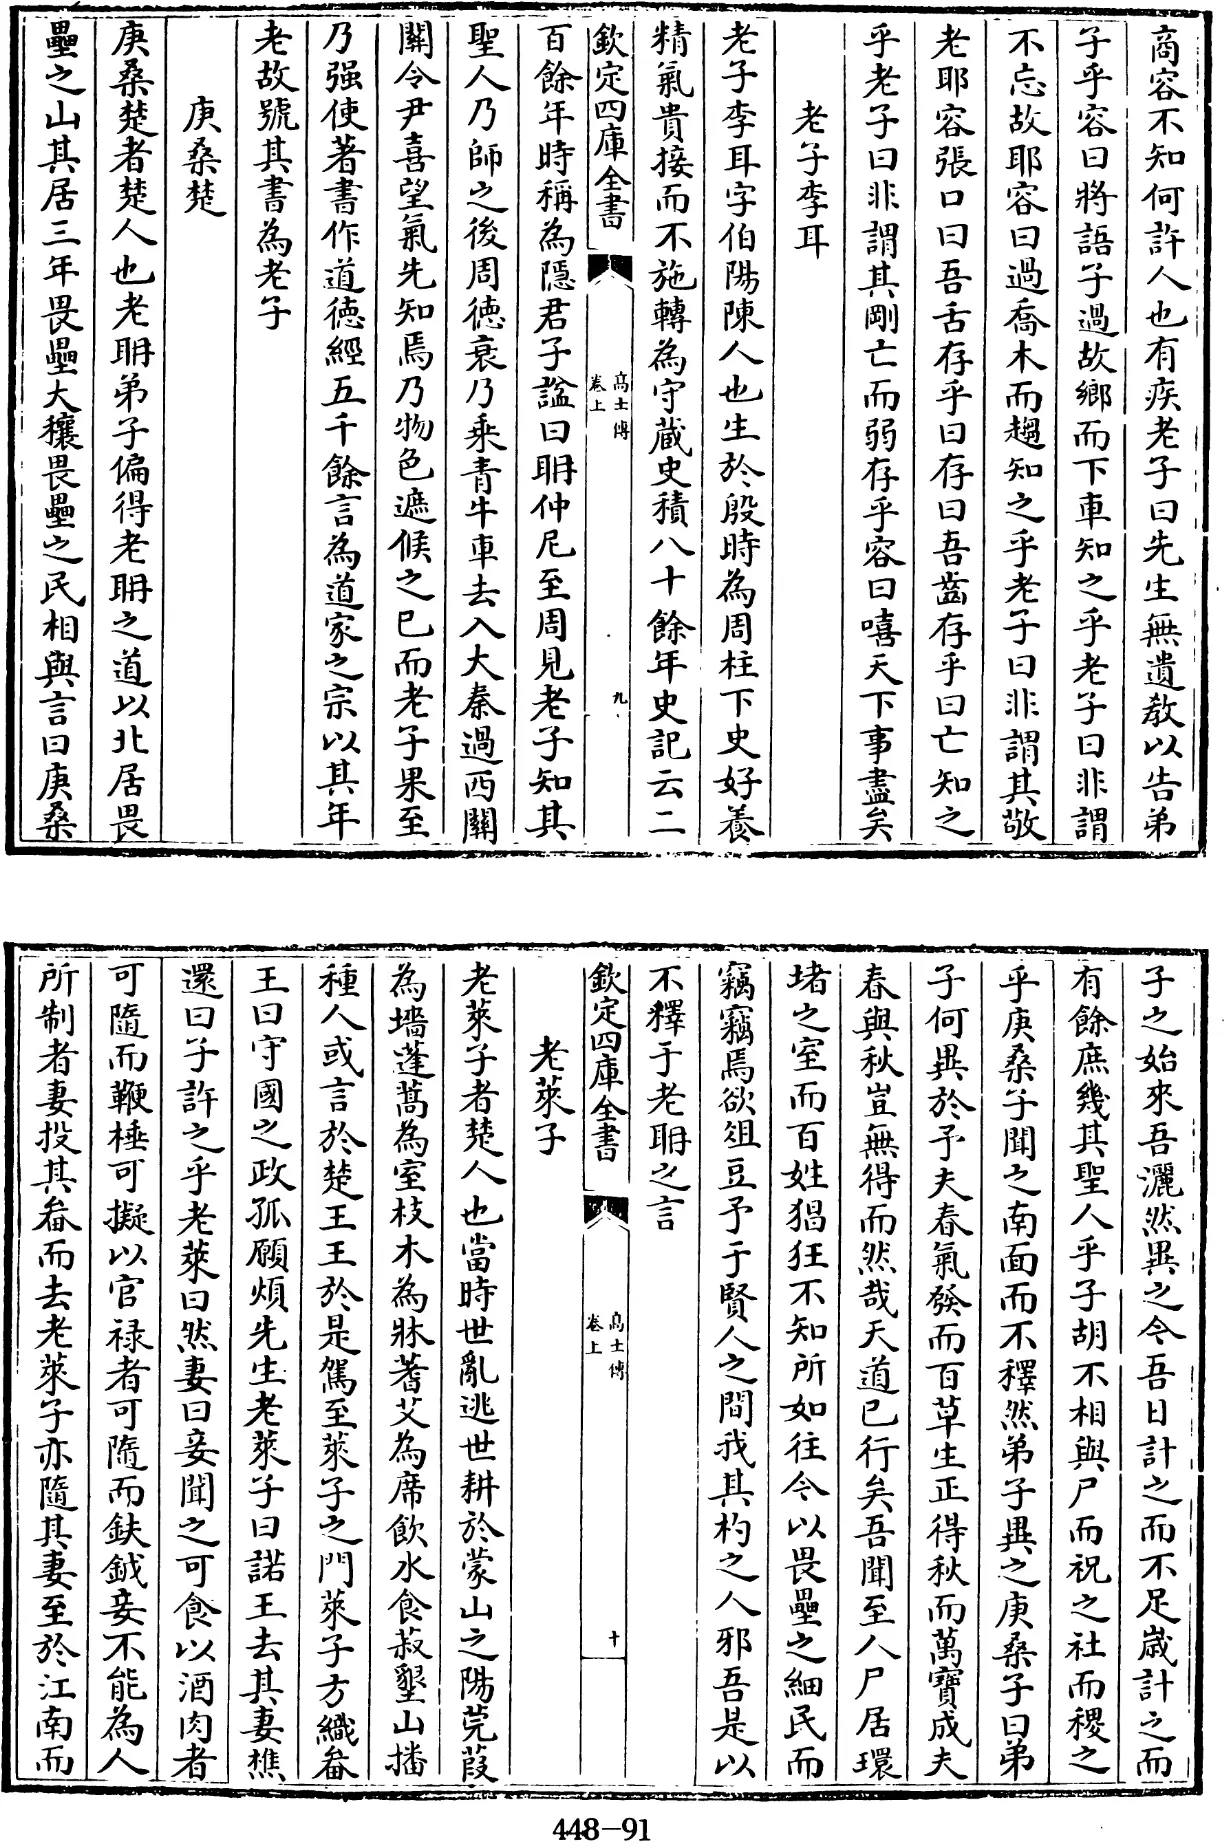 商容不知何許人也有疾老子曰先生無遺敎以告弟
子乎容曰將語子過故鄉而下車知之乎老子曰非謂
不忘故耶容曰過喬木而趨知之乎老子曰非謂其敬
老耶容張口曰吾舌存乎曰存曰吾齒存乎曰亡知之
乎老子曰非謂其剛亡而弱存乎容曰嘻天下事盡矣
老子李耳
老子李耳字伯陽陳人也生於殷時為周柱下史好養
精氣貴接而不施轉為守藏史積八十餘年史記云二
欽定四庫全書
高士傳
卷上
九
百餘年時稱為隱君子諡曰聃仲尼至周見老子知其
聖人乃師之後周德衰乃乘青牛車去入大秦過西關
關令尹喜望氣先知焉乃物色遮候之已而老子果至
乃强使著書作道德經五千餘言為道家之宗以其年
老故號其書為老子
庚桑楚
庚桑楚者楚人也老聃弟子偏得老聃之道以北居畏
壘之山其居三年畏壘大穰畏壘之民相與言曰庚桑
子之始來吾灑然異之今吾日計之而不足歲計之而
有餘庶幾其聖人乎子胡不相與尸而祝之社而稷之
乎庚桑子聞之南面而不釋然弟子異之庚桑子曰弟
子何異於予夫春氣發而百草生正得秋而萬寶成夫
春與秋豈無得而然哉天道已行矣吾聞至人尸居環
堵之室而百姓猖狂不知所如往今以畏壘之細民而
竊竊焉欲俎豆予于賢人之間我其杓之人邪吾是以
不釋于老聃之言
欽定四庫全書
高士傳
卷上
十
老萊子
老萊子者楚人也當時世亂逃世耕於蒙山之陽莞葭
為墻蓬蒿為室枝木為牀蓍艾為席飲水食菽墾山播
種人或言於楚王王於是駕至萊子之門萊子方織畚
王曰守國之政孤願煩先生老萊子曰諾王去其妻樵
還曰子許之乎老萊曰然妻曰妾聞之可食以酒肉者
可隨而鞭棰可擬以官祿者可隨而鈇鉞妾不能為人
所制者妻投其畚而去老萊子亦隨其妻至於江南而
448-91